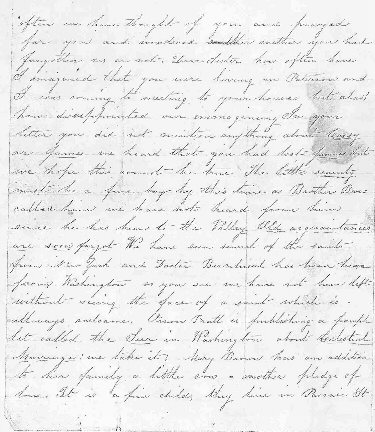 often we have thought of you and prayed
for you and wondered whether you had
forgotten us or not. Dear Sister how often have
I imagined that you were having an Prairie and
I was coming to meeting to your house but alas!
how disappointed our imaginings In your
letter you did not mention anything about
or James we heard that you had lost James but
we hope this is not the true. The little
must be a fine boy by this time as Brother
called him we have not heard from him
since he has been to the Valley Old acquaintances
are soon forgot We have seen much of the saints
from New York and Foster has been here
from Washington so you see we have not been left
without seeing the face of a saint which is
allways welcome. Orson Pratt is publishing a pamph
let called the Seer in Washington about Celestial
Marriage: we take it; Mary has an addition
to her family a little son a another pledge of
love. It is a fine child, they live in St